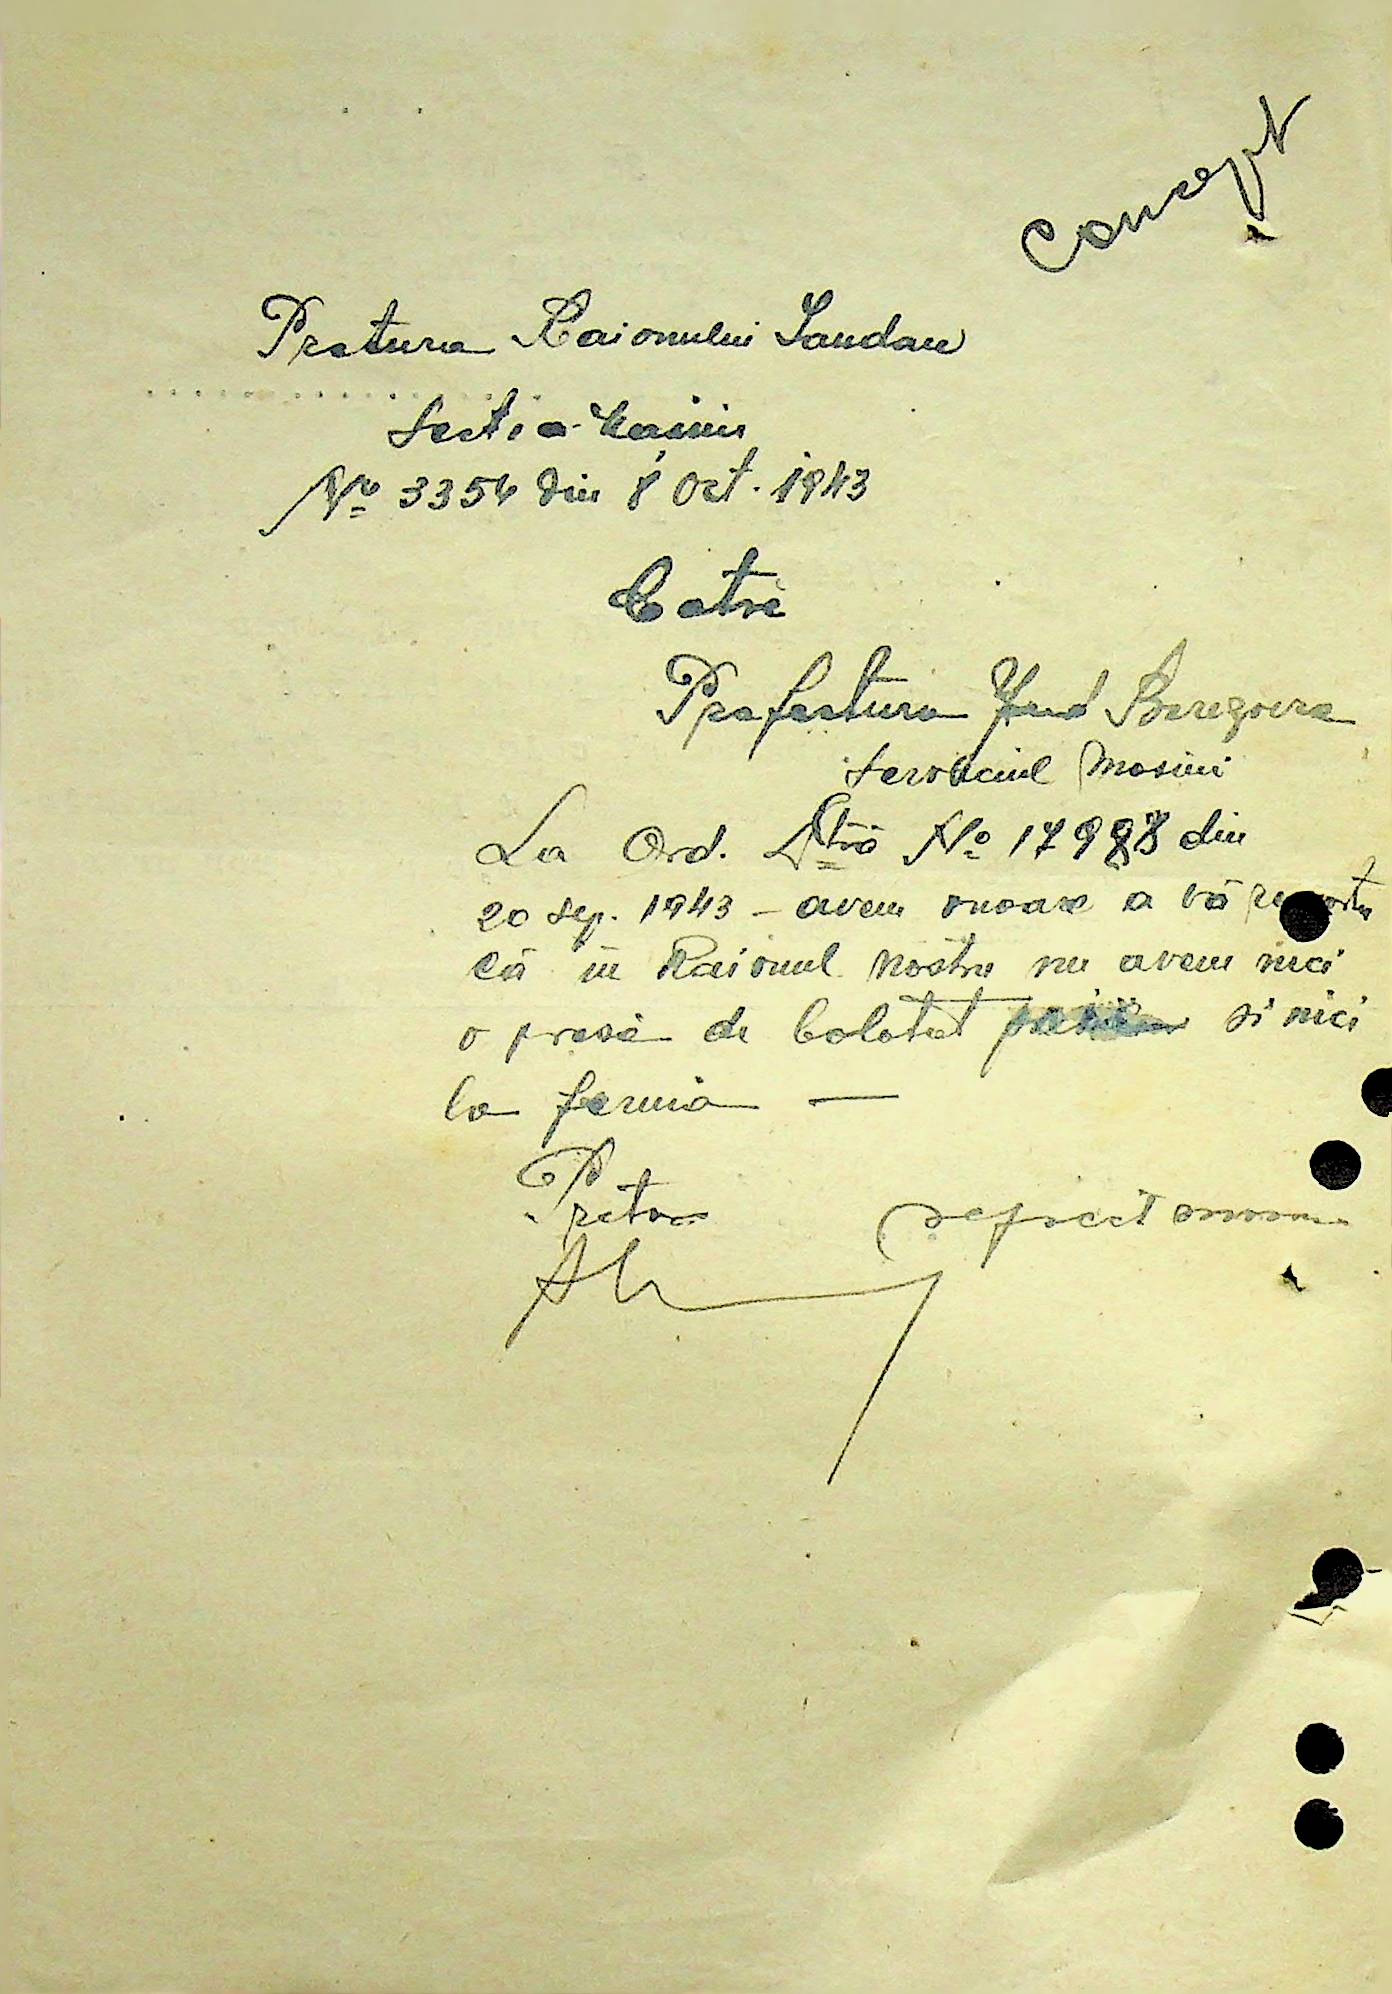 Concept
Pretura Raionului Landau
Sectia Masini
No 3354 din 8 Oct. 1943
Catre
Prefectura Jud Berezovca
Serviciul Masini
La Ord. Dtră No 17998 din
20 Sep. 1943 – avem onoare a vă raporta
că in Raionul nostru nu avem nici
o presă de balotat si nici
la fermă —
Pretor